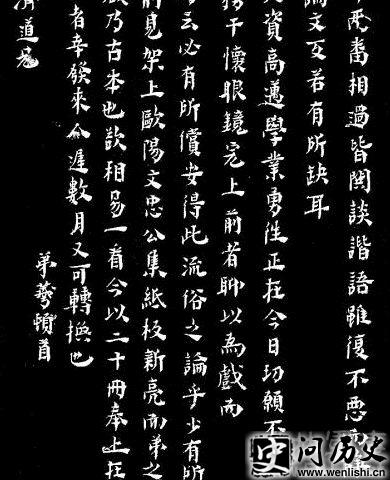 兩番相過皆闊談諧語雖復不惡
論文若有所缺耳
資高邁學業勇進正在今日切願不
干懷眼鏡完上前者聊以為戲而
云必有所償安得此流俗之論乎少有所
前見架上歐陽文忠公集紙板新亮而弟之
乃古本也欲相易一看今以二十冊奉上在
者幸發來遲數月又可轉換也
弟頓首
道兄
问历史
www.wenlishi.cn